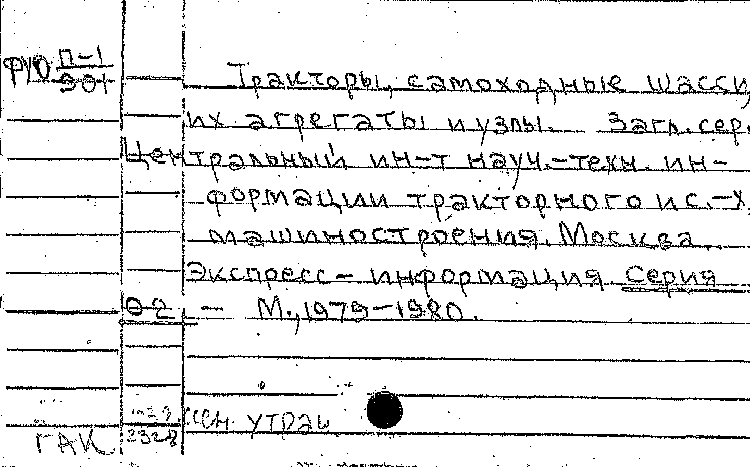 Ф10 П-1
901
Тракторы, самоходные шасси,
их агрегаты и узлы. Загл. сер.
Центральный ин-т науч.-техн. ин-
формации тракторного и с.-х.
машиностроения. Москва.
Экспресс-информация. Серия
02. - М., 1979-1980.
ГАК 2328